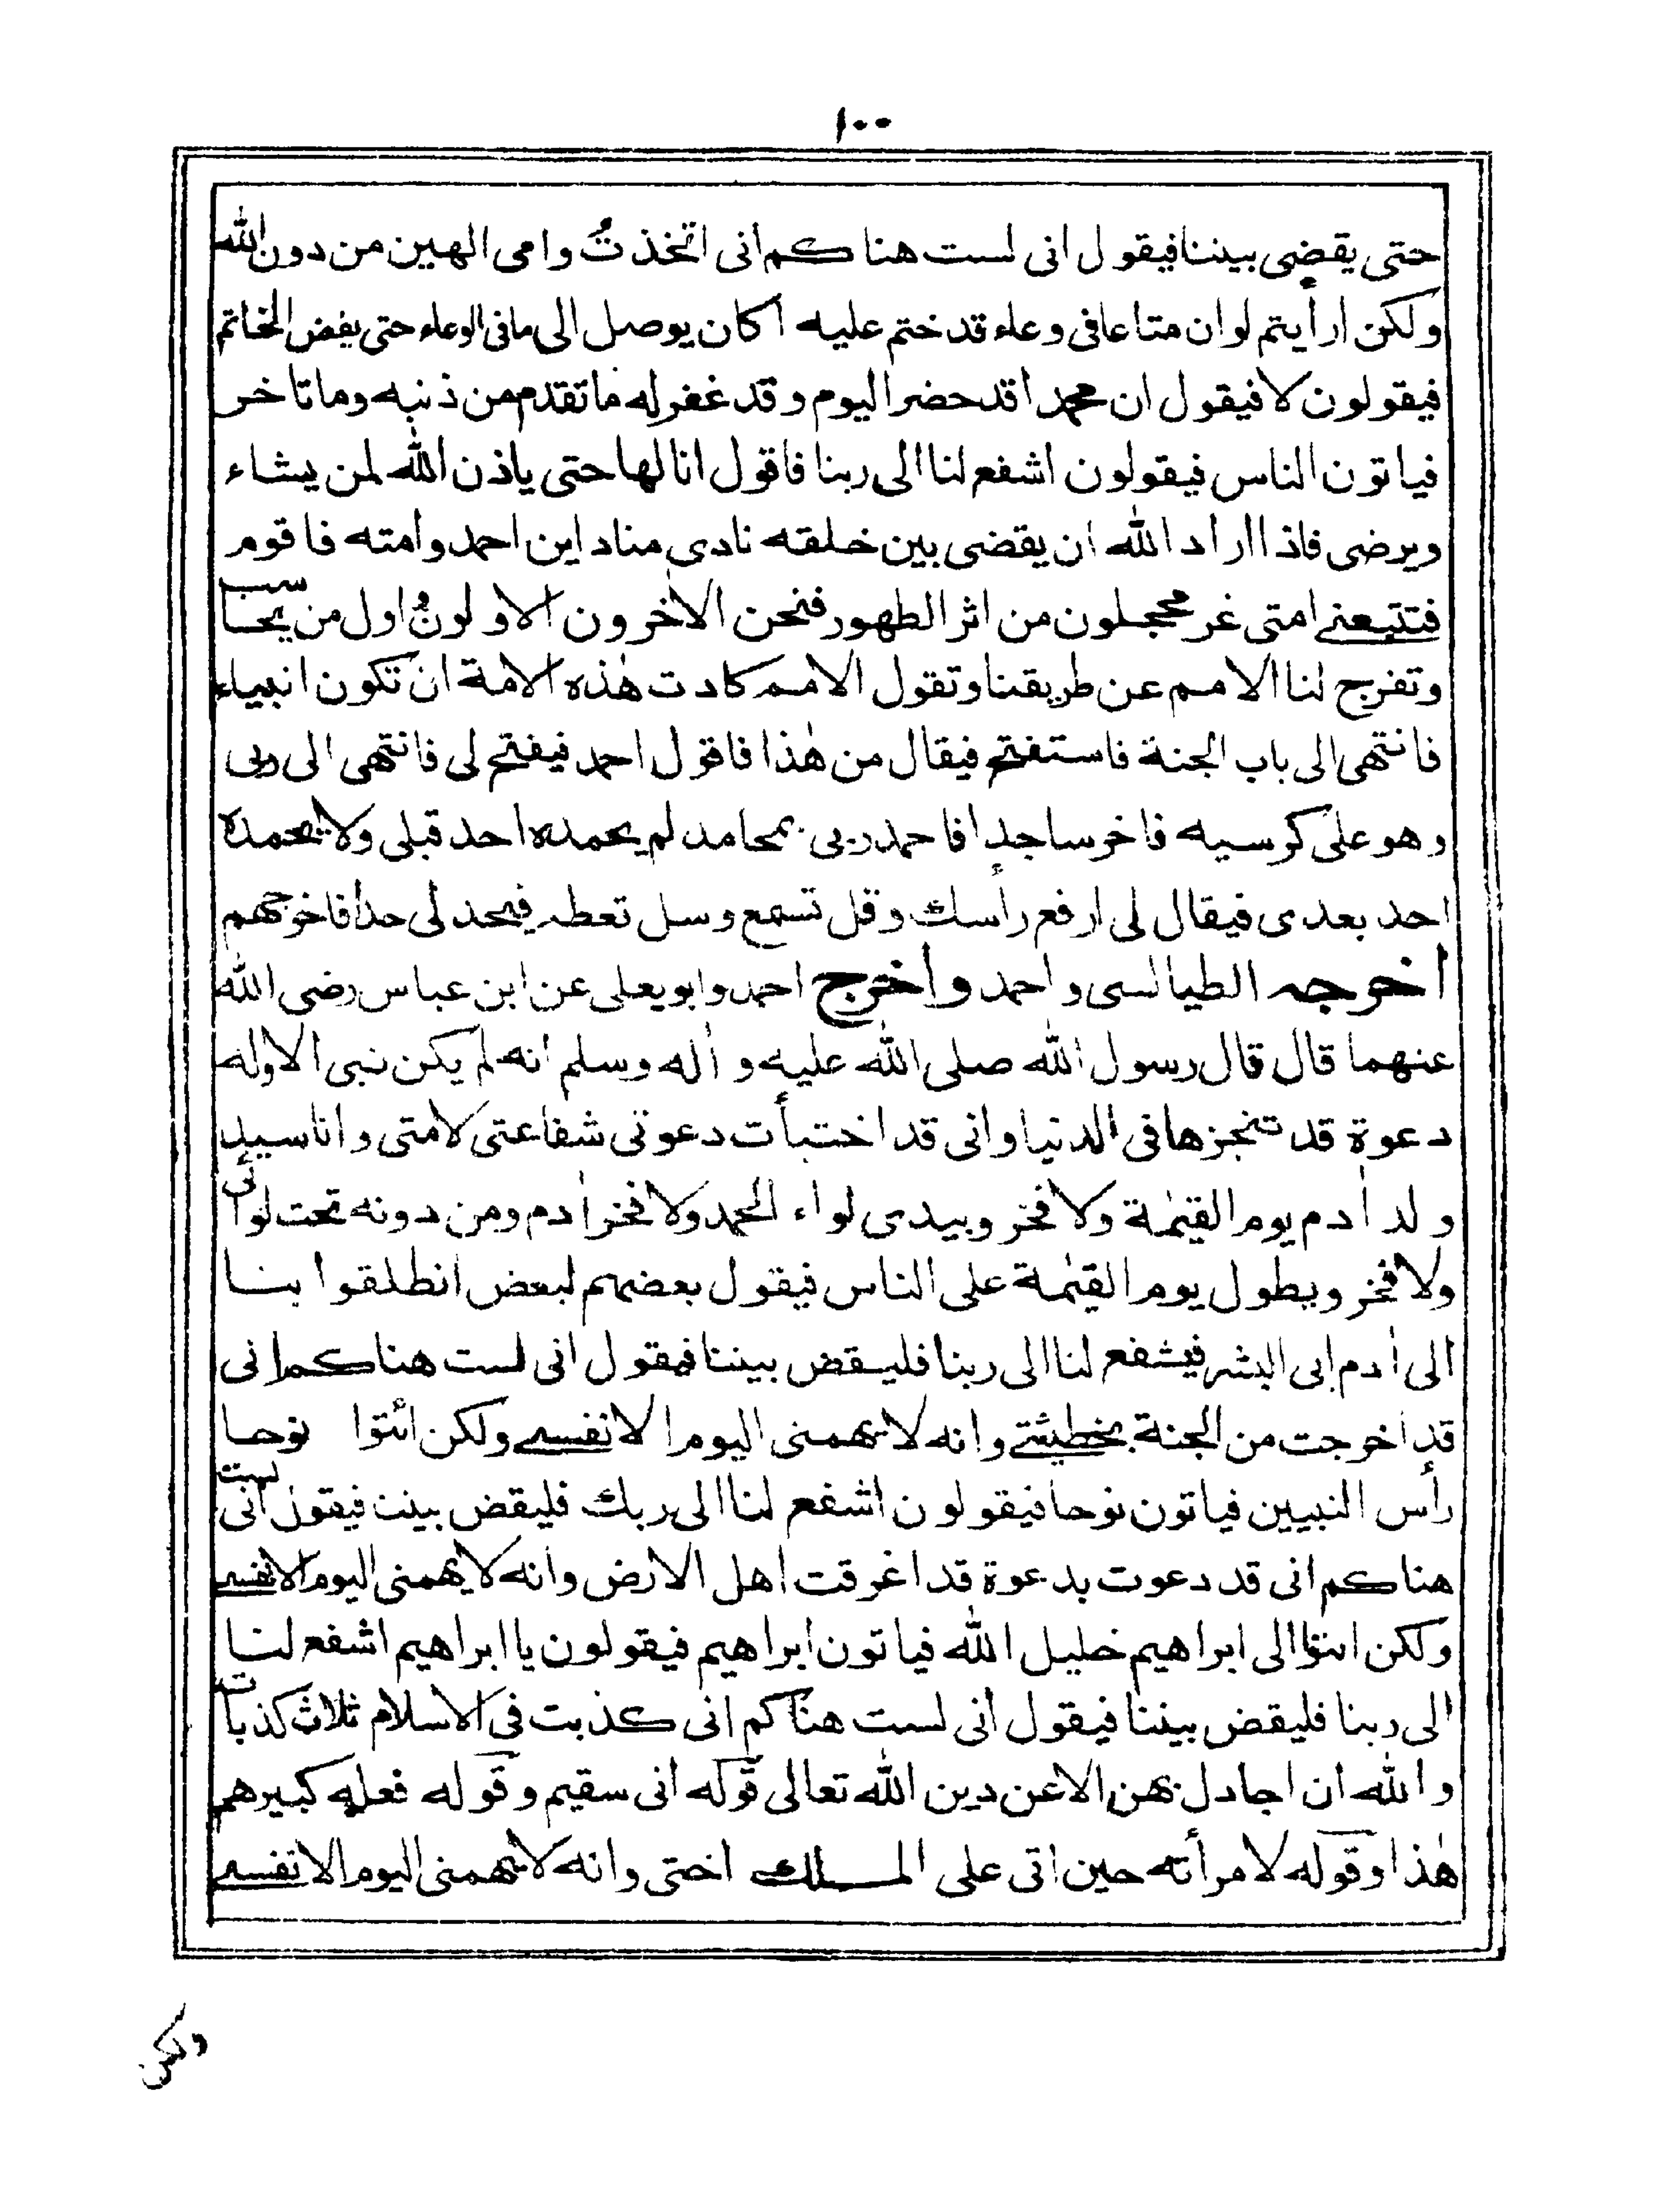 ١٠٠
حتى يقضى بيننا فيقول انى لست هناكم انى اتخذتُ وامى الهين من دون الله
ولكن ارأيتم لو ان متاعا فى وعاء قد ختم عليه أكان يوصل الى ما فى الوعاء حتى يفض الخاتم
فيقولون لا فيقول ان محمدا قد حضر اليوم وقد غفر له ما تقدم من ذنبه وما تاخر
فياتون الناس فيقولون اشفع لنا الى ربنا فاقول انا لها حتى ياذن الله لمن يشاء
ويرضى فاذا اراد الله ان يقضى بين خلقه نادى مناد اين احمد وامته فاقوم
فتتبعنے امتى غر محجلون من اثر الطهور فنحن الاٰخرون الاولونُ اول من يحاسب
وتفرج لنا الامم عن طريقنا وتقول الامم كادت هٰذه الامة ان تكون انبياء
فانتهى الى باب الجنة فاستفتح فيقال من هٰذا فاقول احمد فيفتح لى فانتهى الى ربى
وهو على كرسيه فاخر ساجدا فاحمد ربى بمحامد لم يحمده احد قبلى ولا يحمده
احد بعدى فيقال لى ارفع رأسك وقل تسمع وسل تعطه فيحد لى حدا فاخرجهم
اخرجه الطيالسى واحمد واخرج احمد وابو يعلى عن ابن عباس رضى الله
عنهما قال قال رسول الله صلى الله عليه واٰله وسلم انه لم يكن نبى الا وله
دعوة قد تنجزها فى الدنيا وانى قد اختبأت دعوتى شفاعتى لامتى وانا سيد
ولد اٰدم يوم القيٰمة ولا فخر وبيدى لواء الحمد ولا فخر اٰدم ومن دونه تحت لوائى
ولا فخر ويطول يوم القيٰمة على الناس فيقول بعضهم لبعض انطلقوا بنا
الى اٰدم ابى البشر فيشفع لنا الى ربنا فليقض بيننا فيقول انى لست هناكم انى
قد اخرجت من الجنة بخطيئتے وانه لا يهمنى اليوم الا نفسے ولكن ائتوا نوحا
رأس النبيين فياتون نوحا فيقولون اشفع لنا الى ربك فليقض بيننا فيقول انى لست
هناكم انى قد دعوت بدعوة قد اغرقت اهل الارض وانه لا يهمنى اليوم الا نفسے
ولكن ائتوا الى ابراهيم خليل الله فياتون ابراهيم فيقولون يا ابراهيم اشفع لنا
الى ربنا فليقض بيننا فيقول انى لست هناكم انى كذبت فى الاسلام ثلاث كذبات
والله ان اجادل بهن الا عن دين الله تعالى قوله انى سقيم وقوله فعله كبيرهم
هٰذا وقوله لامرأته حين اتى على الملك اختى وانه لا يهمنى اليوم الا نفسے
ولكن